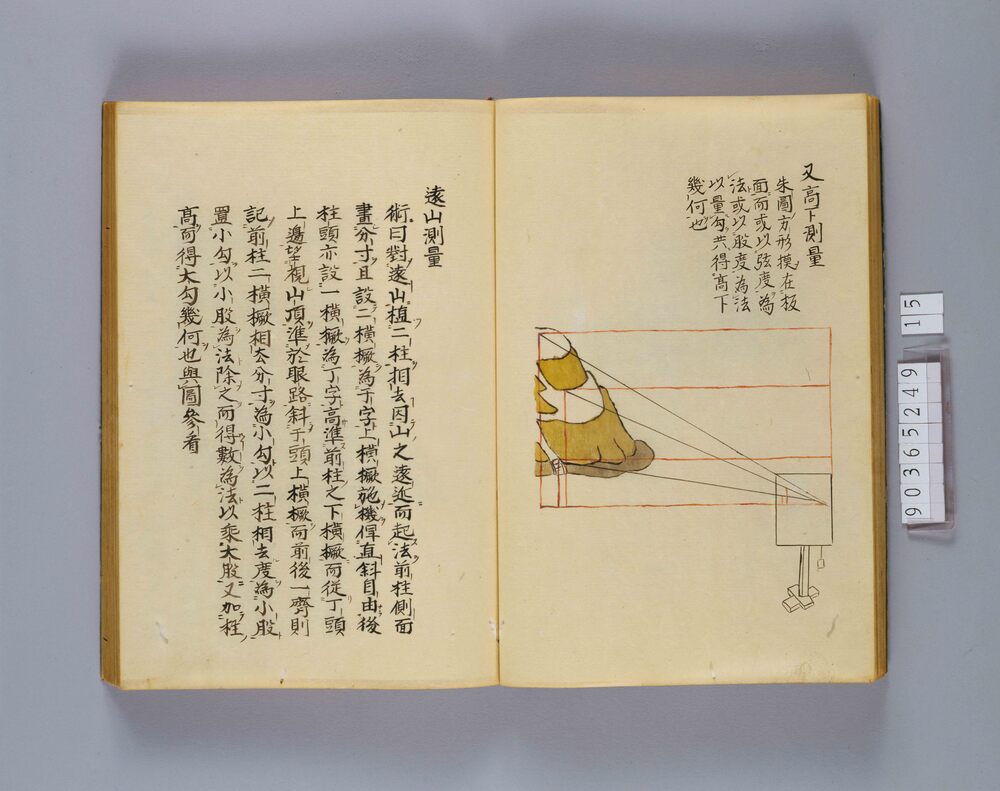 又高下測量
朱圖方形摸在板
面而或以弦度為
法或以股度為法
以量勾共得高下
幾何也
遠山測量
術曰對遠山植二柱相去因山之遠近而起法前柱側面
畫分寸且設二横橛為丁字上横橛施機俾直斜自由後
柱頭亦設一横橛為丁字高準前柱之下横橛而從丁頭
上邊望視山頂準於眼路斜于頭上横橛而前後一齊則
記前柱二横橛相去分寸為小勾以二柱相去度為小股
置小勾以小股為法除之而得數為法以乘大股又加柱
高而得大勾幾何也與圖參看
15
90365249